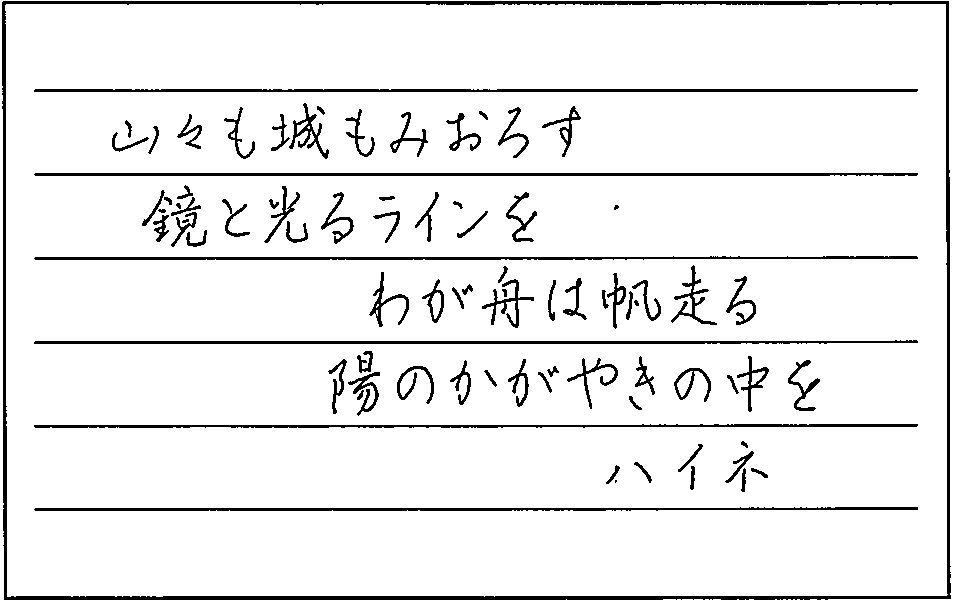 山々も城もみおろす
鏡と光るラインを
わが舟は帆走る
陽のかがやきの中を
ハイネ